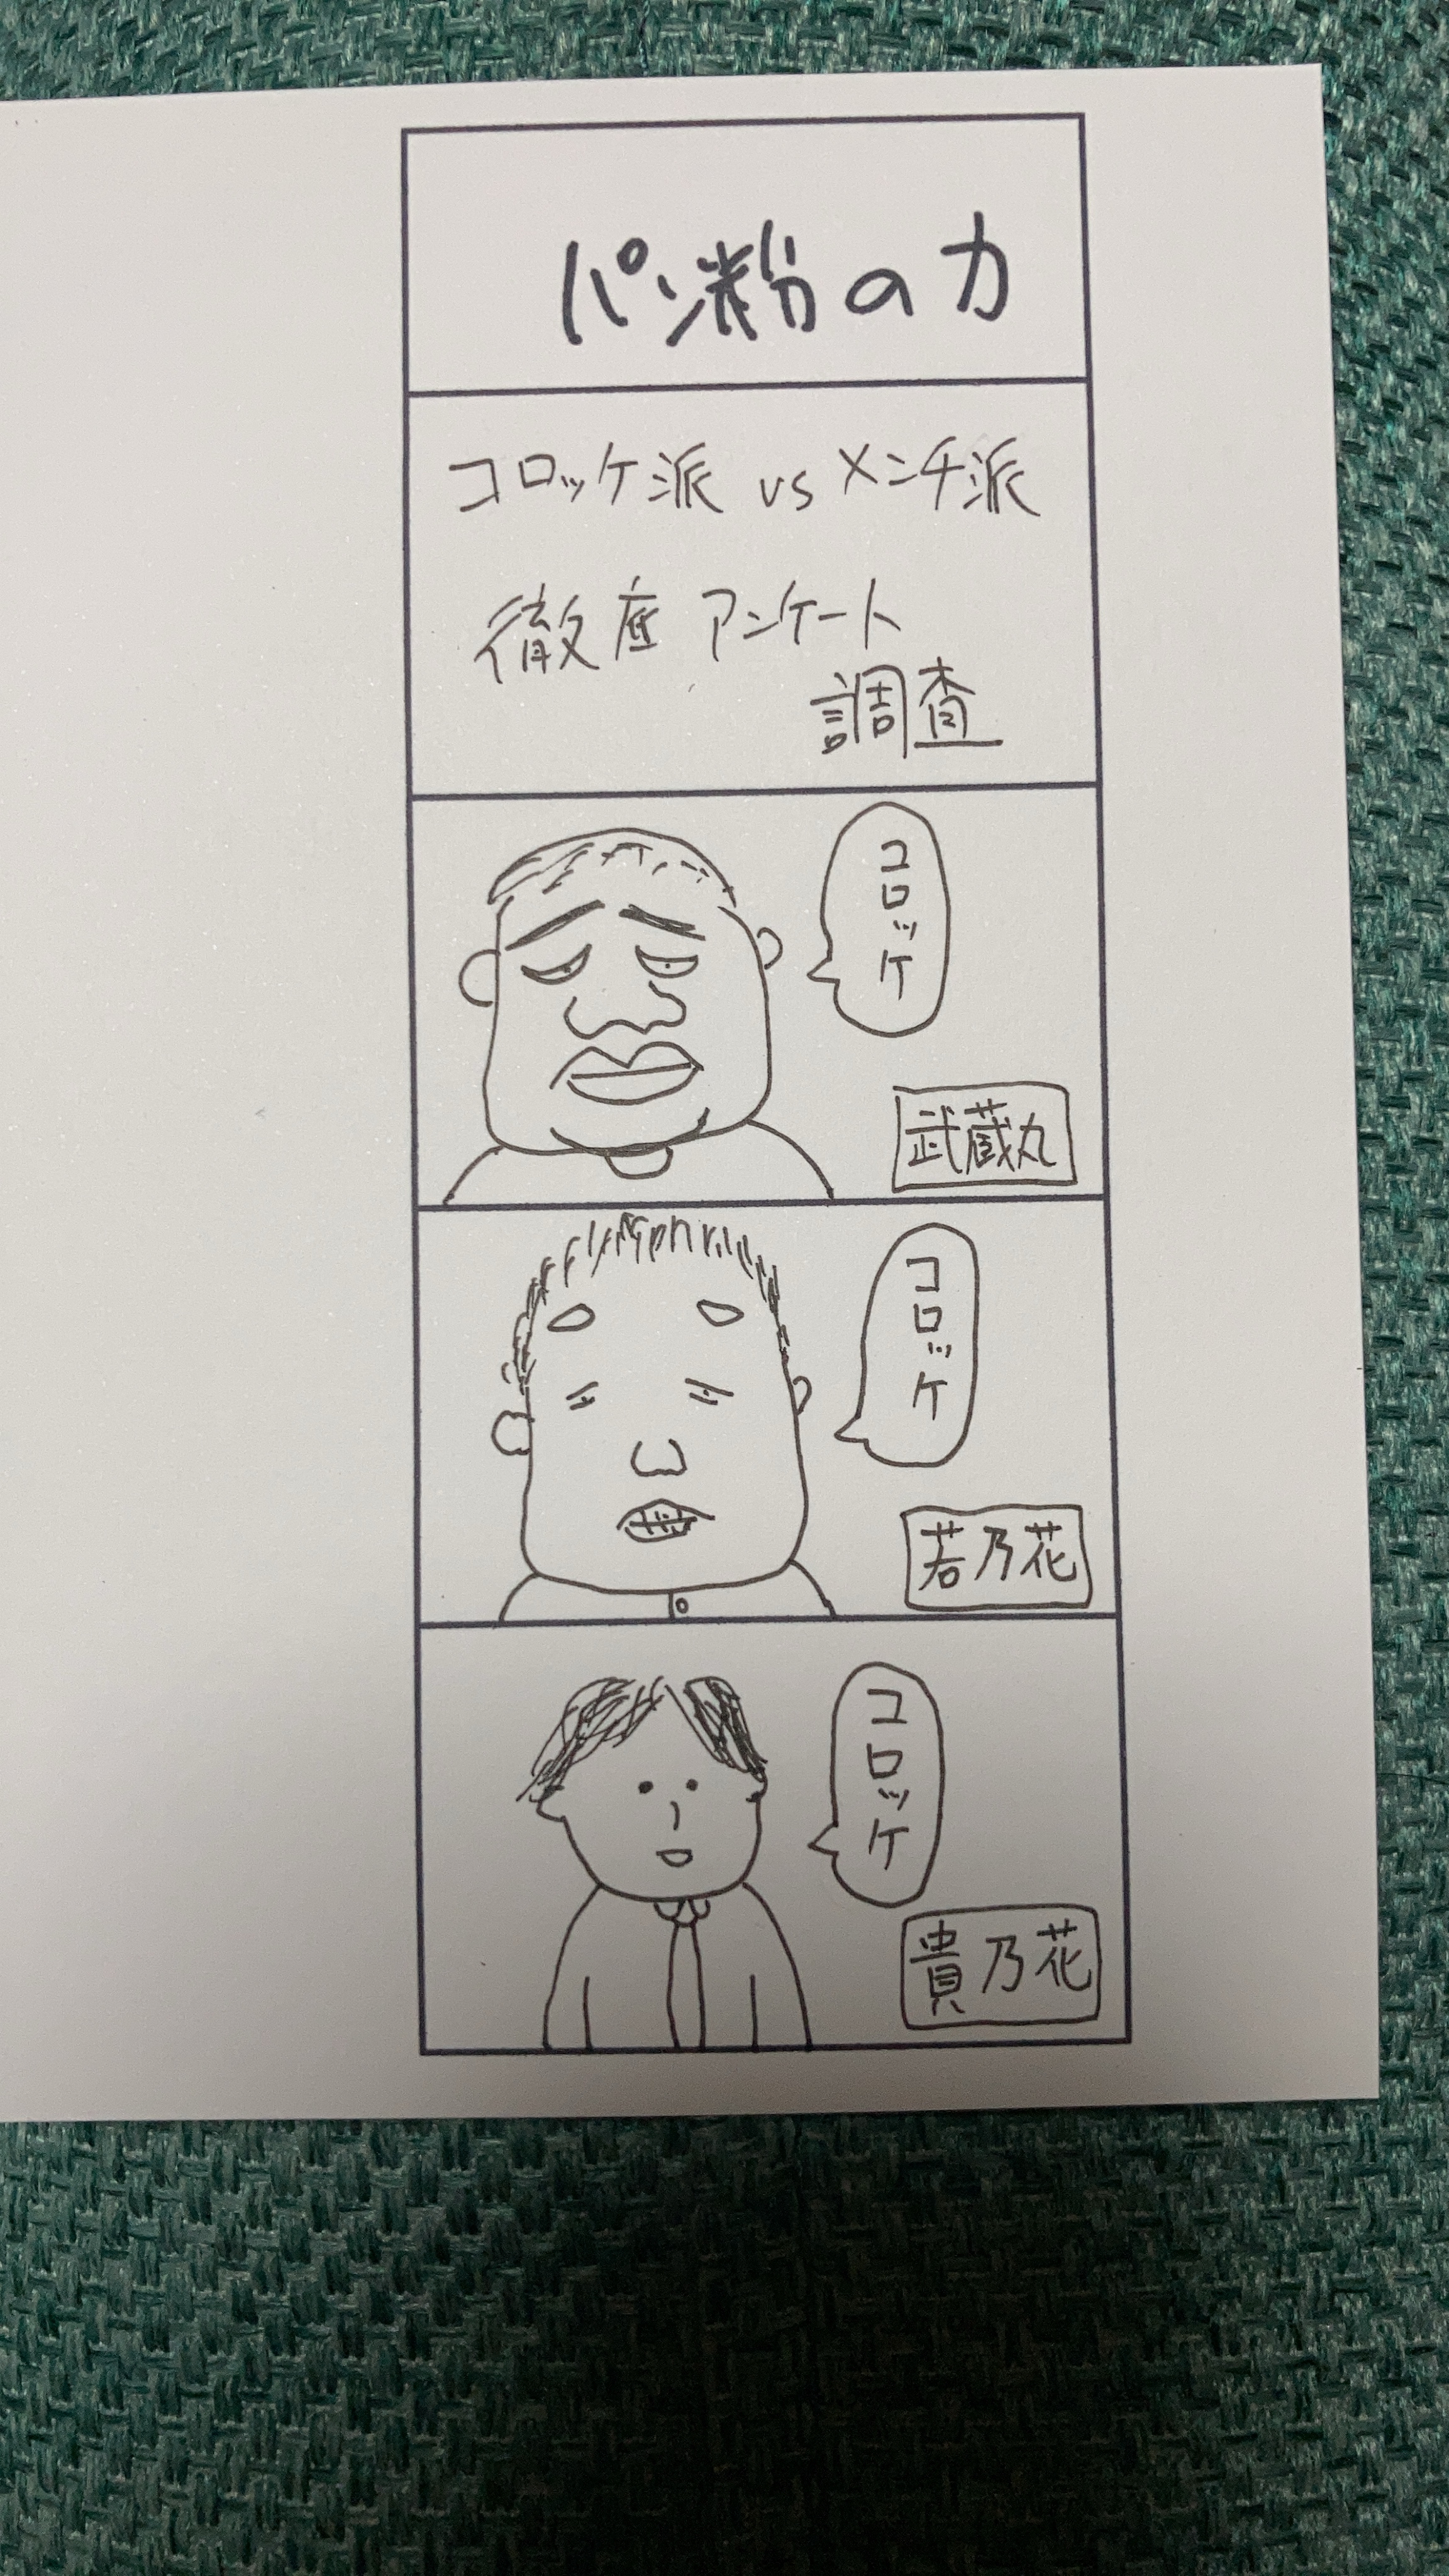 パン粉の力
コロッケ派 vs メンチ派
徹底アンケート
調査
コロッケ
武蔵丸
コロッケ
若乃花
コロッケ
貴乃花